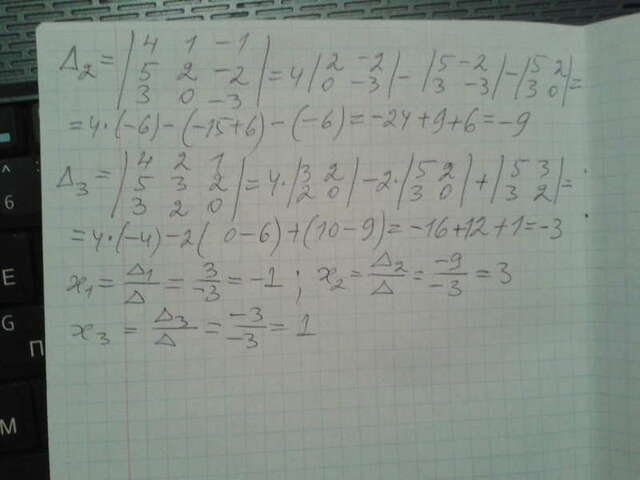 Δ₂ = |4 1 -1; 5 2 -2; 3 0 -3| = 4|2 -2; 0 -3| - |5 -2; 3 -3| - |5 2; 3 0| =
= 4·(-6) - (-15+6) - (-6) = -24+9+6 = -9
Δ₃ = |4 2 1; 5 3 2; 3 2 0| = 4·|3 2; 2 0| - 2·|5 2; 3 0| + |5 3; 3 2| =
= 4·(-4) - 2(0-6) + (10-9) = -16+12+1 = -3
x₁ = Δ₁/Δ = 3/-3 = -1; x₂ = Δ₂/Δ = -9/-3 = 3
x₃ = Δ₃/Δ = -3/-3 = 1
^
6
E
G
П
M